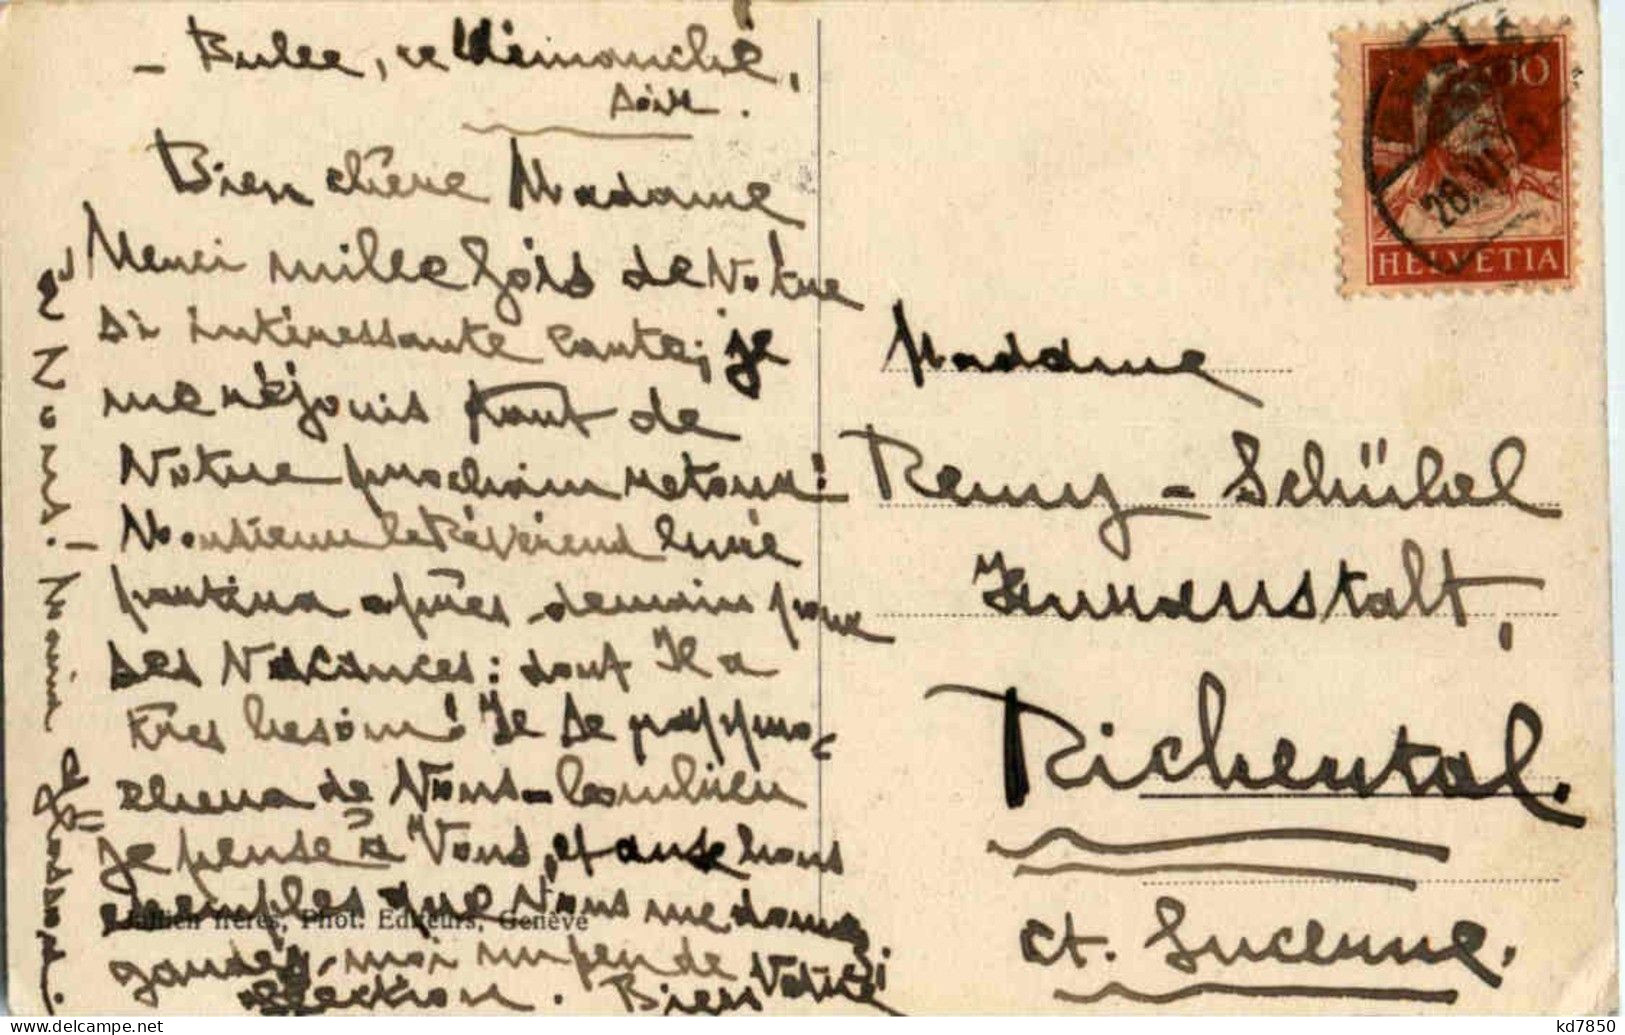 - Bulle, ce dimanche,
soir.
Bien chère Madame
Merci mille fois de Votre
si intéressante carte; je
me réjouis tant de
Votre prochain retour!
Monsieur le Révérend Curé
partira après-demain pour
ses Vacances: dont Il a
très besoin! Il se rappro-
chera de Vous - Combien
je pense à Vous, et aux bons
exemples que Vous me donnez!
gardez-moi un peu de Votre
affection. Bien
à Vous. - Maria
Madame
Remy - Schübel
Kuranstalt,
Richental.
Ct. Lucerne.
HELVETIA
10
BULLE
28. VI
Jullien frères, Phot. Editeurs, Genève
kd7850